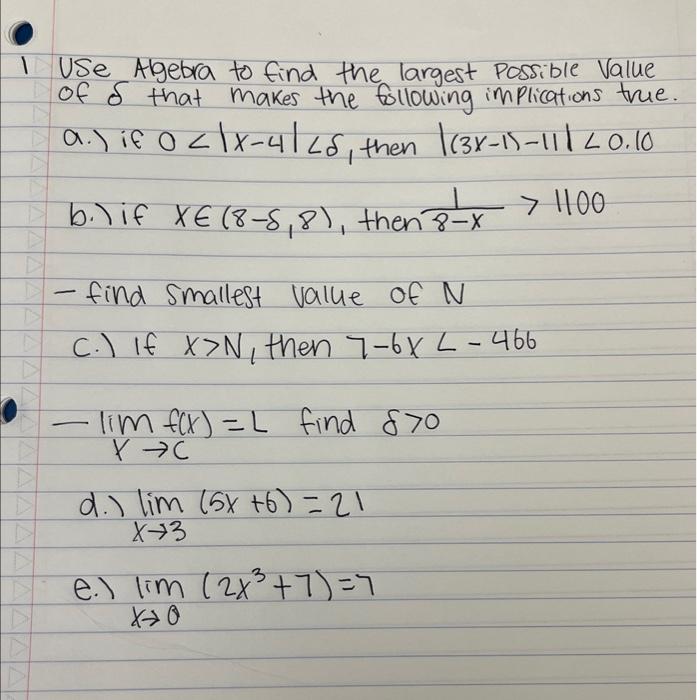 1 Use Algebra to find the largest Possible Value
of δ that makes the following implications true.
a.) if 0 < |x-4| < δ, then |(3x-1)-11| < 0.10
b.) if x ∈ (8-δ, 8), then 1/(8-x) > 1100
- find smallest value of N
c.) If x > N, then 7-6x < -466
- lim f(x) = L find δ > 0
x → c
d.) lim (5x + 6) = 21
x → 3
e.) lim (2x³ + 7) = 7
x → 0